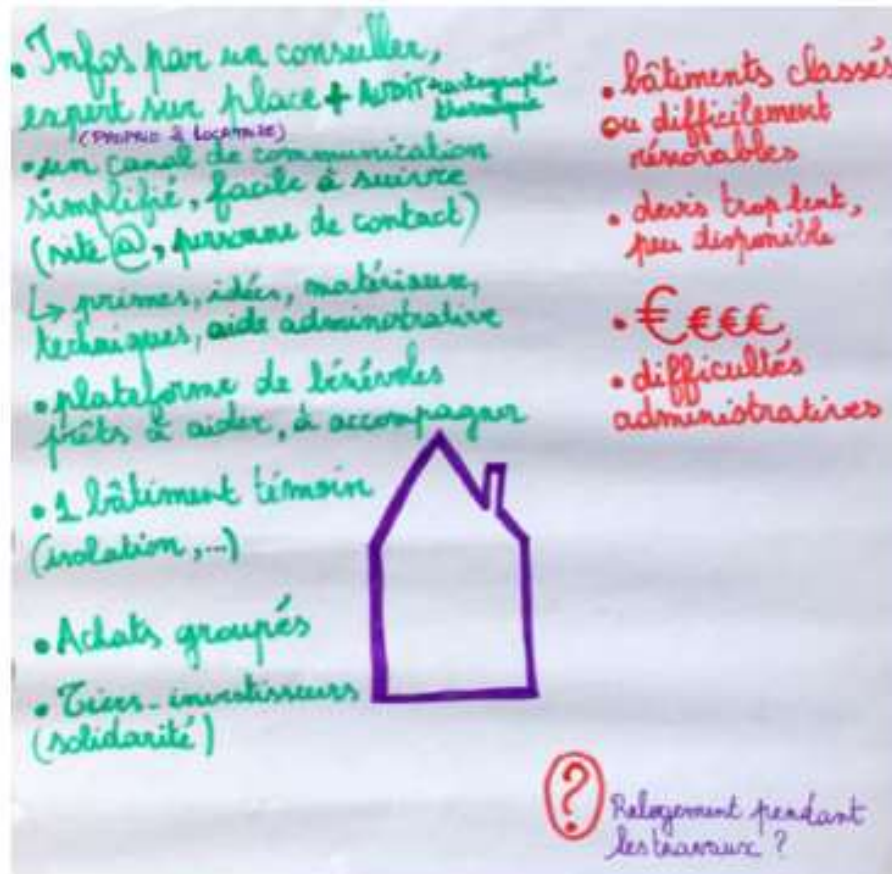 • Infos par un conseiller,
expert sur place + AUDIT + cartographie
thermique
(PROPRIO & LOCATAIRE)
• un canal de communication
simplifié, facile à suivre
(site @, personne de contact)
↳ primes, idées, matériaux,
techniques, aide administrative
• plateforme de bénévoles
prêts à aider, à accompagner
• 1 bâtiment témoin
(isolation, ...)
• Achats groupés
• Tiers-investisseurs
(solidarité)
• bâtiments classés
ou difficilement
rénovables
• devis trop lent,
peu disponible
• € € € €
• difficultés
administratives
? Relogement pendant
les travaux ?